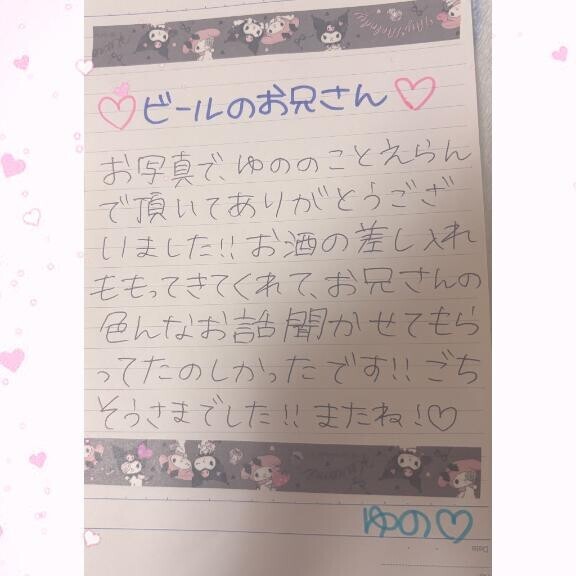 ♡ビールのお兄さん♡
お写真で、ゆののことえらん
で頂いてありがとうござ
いました!! お酒の差し入れ
ももってきてくれて、お兄さんの
色んなお話聞かせてもら
ってたのしかったです!! ごち
そうさまでした!! またね!♡
ゆの♡
Date